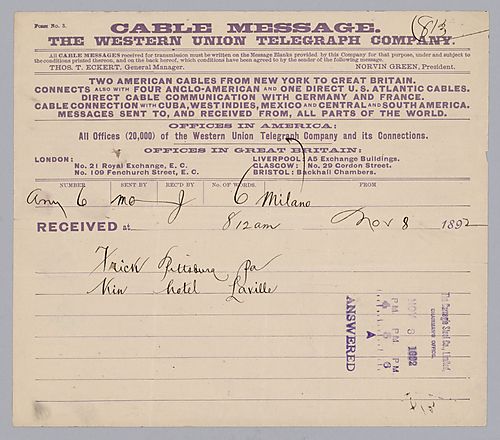 Form No. 3.
CABLE MESSAGE.
THE WESTERN UNION TELEGRAPH COMPANY.
All CABLE MESSAGES received for transmission must be written on the Message Blanks provided by this Company for that purpose, under and subject to
the conditions printed thereon, and on the back hereof, which conditions have been agreed to by the sender of the following message.
THOS. T. ECKERT, General Manager. NORVIN GREEN, President.
TWO AMERICAN CABLES FROM NEW YORK TO GREAT BRITAIN.
CONNECTS ALSO WITH FOUR ANGLO-AMERICAN AND ONE DIRECT U.S. ATLANTIC CABLES.
DIRECT CABLE COMMUNICATION WITH GERMANY AND FRANCE.
CABLE CONNECTION WITH CUBA, WEST INDIES, MEXICO AND CENTRAL AND SOUTH AMERICA.
MESSAGES SENT TO, AND RECEIVED FROM, ALL PARTS OF THE WORLD.
OFFICES IN AMERICA:
All Offices (20,000) of the Western Union Telegraph Company and its Connections.
OFFICES IN GREAT BRITAIN:
LONDON: LIVERPOOL: A5 Exchange Buildings.
No. 21 Royal Exchange, E. C. GLASGOW: No. 29 Gordon Street.
No. 109 Fenchurch Street, E. C. BRISTOL: Backhall Chambers.
NUMBER SENT BY REC'D BY No. OF WORDS. FROM
6 mo J 6 Milano
RECEIVED at 812am Nov 8 1892
Frick Pittsburg Pa
hotel
The Carnegie Steel Co., Limited,
CHAIRMAN'S OFFICE.
NOV 8 1892
PM PM PM
4 5 6
ANSWERED